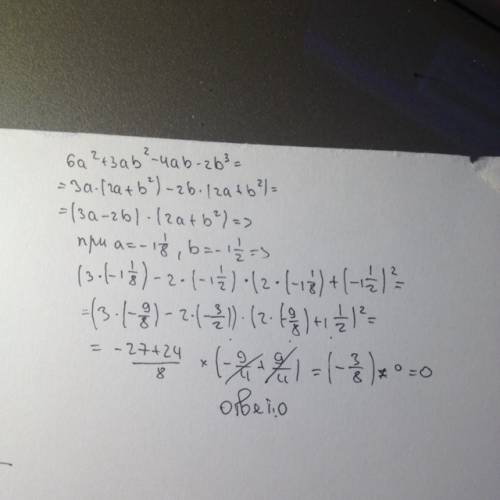 6a²+3ab²-4ab-2b³=
=3a·(2a+b²)-2b·(2a+b²)=
=(3a-2b)·(2a+b²)=>
при a=-1 1/8, b=-1 1/2 =>
(3·(-1 1/8)-2·(-1 1/2)·(2·(-1 1/8)+(-1 1/2)²=
=(3·(-9/8)-2·(-3/2))·(2·(-9/8)+1 1/2)²=
= (-27+24)/8 × (-9/4+9/4) = (-3/8)×0=0
Ответ:0